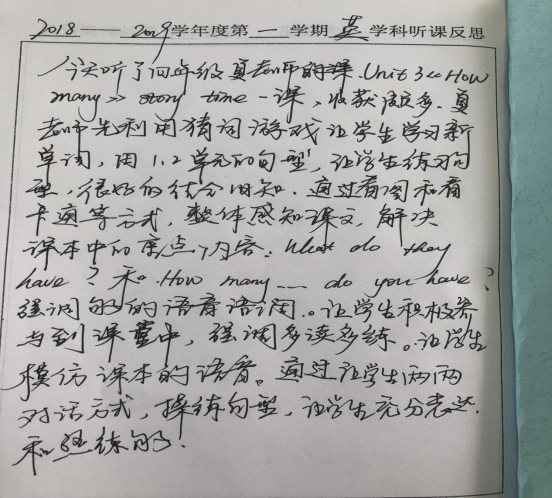 2018——2019学年度第一学期英学科听课反思
今天听了四年级夏老师的课.Unit 3《How
many》story time 一课，收获颇多.夏
老师先利用猜词游戏让学生学习新
单词，用1.2单元的句型，让学生练习句
型，很好的结合旧知.通过看图和看
卡通等方式，整体感知课文，解决
课本中的重点内容：What do they
have？和.How many___ do you have？
强调句子的语音语调。让学生积极参
与到课堂中，强调多读多练。让学生
模仿课本的语音。通过让学生两两
对话方式，操练句型，让学生充分表达.
和熟练句子.